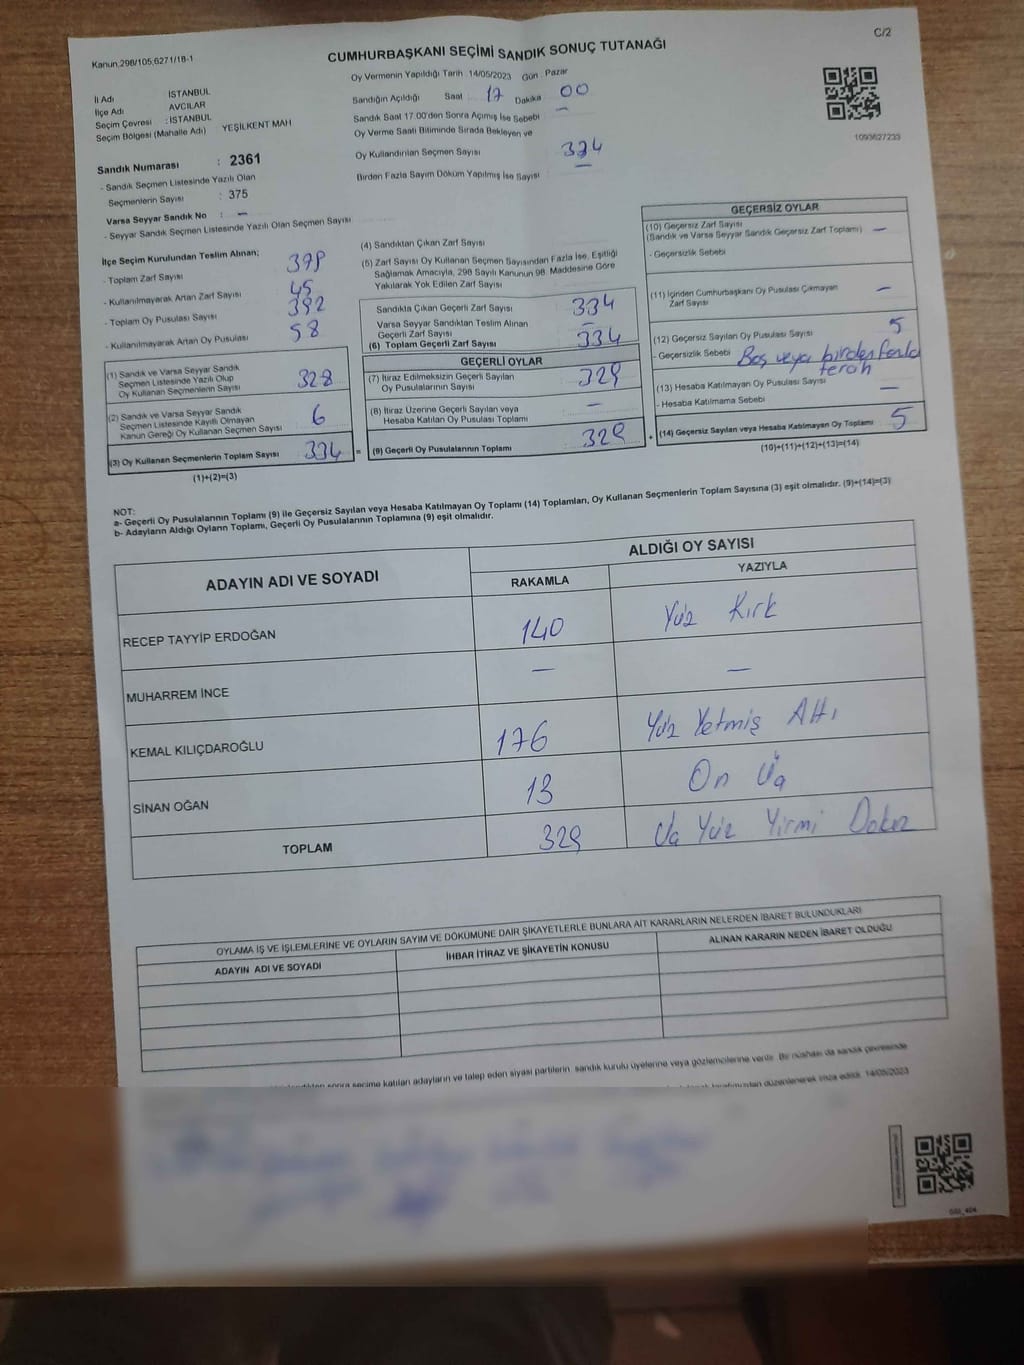 C/2
Kanun,298/105,6271/18-1
CUMHURBAŞKANI SEÇİMİ SANDIK SONUÇ TUTANAĞI
Oy Vermenin Yapıldığı Tarih 14/05/2023 Gün Pazar
İl Adı İSTANBUL
İlçe Adı AVCILAR
Seçim Çevresi : İSTANBUL
Seçim Bölgesi (Mahalle Adı) YEŞİLKENT MAH
Sandığın Açıldığı Saat 17 Dakika 00
Sandık Saat 17.00'den Sonra Açımış İse Sebebi —
Oy Verme Saati Bitiminde Sırada Bekleyen ve
Oy Kullandırılan Seçmen Sayısı 334
Birden Fazla Sayım Döküm Yapılmış İse Sayısı —
1093627233
Sandık Numarası : 2361
- Sandık Seçmen Listesinde Yazılı Olan
Seçmenlerin Sayısı : 375
Varsa Seyyar Sandık No : —
- Seyyar Sandık Seçmen Listesinde Yazılı Olan Seçmen Sayısı
İlçe Seçim Kurulundan Teslim Alınan;
- Toplam Zarf Sayısı
- Kullanılmayarak Artan Zarf Sayısı 45
- Toplam Oy Pusulası Sayısı 392
- Kullanılmayarak Artan Oy Pusulası 58
(1) Sandık ve Varsa Seyyar Sandık
Seçmen Listesinde Yazılı Olup
Oy Kullanan Seçmenlerin Sayısı 328
(2) Sandık ve Varsa Seyyar Sandık
Seçmen Listesinde Kayıtlı Olmayan
Kanun Gereği Oy Kullanan Seçmen Sayısı 6
(3) Oy Kullanan Seçmenlerin Toplam Sayısı 334 =
(1)+(2)=(3)
(4) Sandıktan Çıkan Zarf Sayısı
(5) Zarf Sayısı Oy Kullanan Seçmen Sayısından Fazla İse, Eşitliği
Sağlamak Amacıyla, 298 Sayılı Kanunun 98. Maddesine Göre
Yakılarak Yok Edilen Zarf Sayısı
Sandıkta Çıkan Geçerli Zarf Sayısı 334
Varsa Seyyar Sandıktan Teslim Alınan
Geçerli Zarf Sayısı —
(6) Toplam Geçerli Zarf Sayısı 334
GEÇERLİ OYLAR
(7) İtiraz Edilmeksizin Geçerli Sayılan
Oy Pusulalarının Sayısı 329
(8) İtiraz Üzerine Geçerli Sayılan veya
Hesaba Katılan Oy Pusulası Toplamı —
(9) Geçerli Oy Pusulalarının Toplamı 329 +
GEÇERSİZ OYLAR
(10) Geçersiz Zarf Sayısı
(Sandık ve Varsa Seyyar Sandık Geçersiz Zarf Toplamı) —
- Geçersizlik Sebebi
(11) İçinden Cumhurbaşkanı Oy Pusulası Çıkmayan
Zarf Sayısı —
(12) Geçersiz Sayılan Oy Pusulası Sayısı 5
- Geçersizlik Sebebi Boş veya birden fazla
tercih
(13) Hesaba Katılmayan Oy Pusulası Sayısı —
- Hesaba Katılmama Sebebi
(14) Geçersiz Sayılan veya Hesaba Katılmayan Oy Toplamı 5
(10)+(11)+(12)+(13)=(14)
NOT:
a- Geçerli Oy Pusulalarının Toplamı (9) ile Geçersiz Sayılan veya Hesaba Katılmayan Oy Toplamı (14) Toplamları, Oy Kullanan Seçmenlerin Toplam Sayısına (3) eşit olmalıdır. (9)+(14)=(3)
b- Adayların Aldığı Oyların Toplamı, Geçerli Oy Pusulalarının Toplamına (9) eşit olmalıdır.
ADAYIN ADI VE SOYADI ALDIĞI OY SAYISI
RAKAMLA YAZIYLA
RECEP TAYYİP ERDOĞAN 140 Yüz Kırk
MUHARREM İNCE — —
KEMAL KILIÇDAROĞLU 176 Yüz Yetmiş Altı
SİNAN OĞAN 13 On Üç
TOPLAM 329 Üç Yüz Yirmi Dokuz
OYLAMA İŞ VE İŞLEMLERİNE VE OYLARIN SAYIM VE DÖKÜMÜNE DAİR ŞİKAYETLERLE BUNLARA AİT KARARLARIN NELERDEN İBARET BULUNDUKLARI
ADAYIN ADI VE SOYADI İHBAR İTİRAZ VE ŞİKAYETİN KONUSU ALINAN KARARIN NEDEN İBARET OLDUĞU
sonra seçime katılan adayların ve talep eden siyasi partilerin sandık kurulu üyelerine veya gözlemcilerine verilir. Bir nüshası da sandık çevresinde
düzenlenerek imza edildi. 14/05/2023